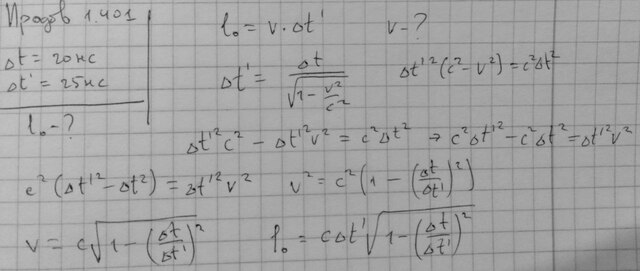 Иродов 1.401
Δt = 20нс
Δt' = 25нс
l₀ - ?
l₀ = v · Δt'    v - ?
Δt' = Δt / √(1 - v²/c²)    Δt'²(c² - v²) = c²Δt²
Δt'²c² - Δt'²v² = c²Δt² → c²Δt'² - c²Δt² = Δt'²v²
c²(Δt'² - Δt²) = Δt'²v²    v² = c²(1 - (Δt/Δt')²)
v = c√(1 - (Δt/Δt')²)    l₀ = cΔt'√(1 - (Δt/Δt')²)